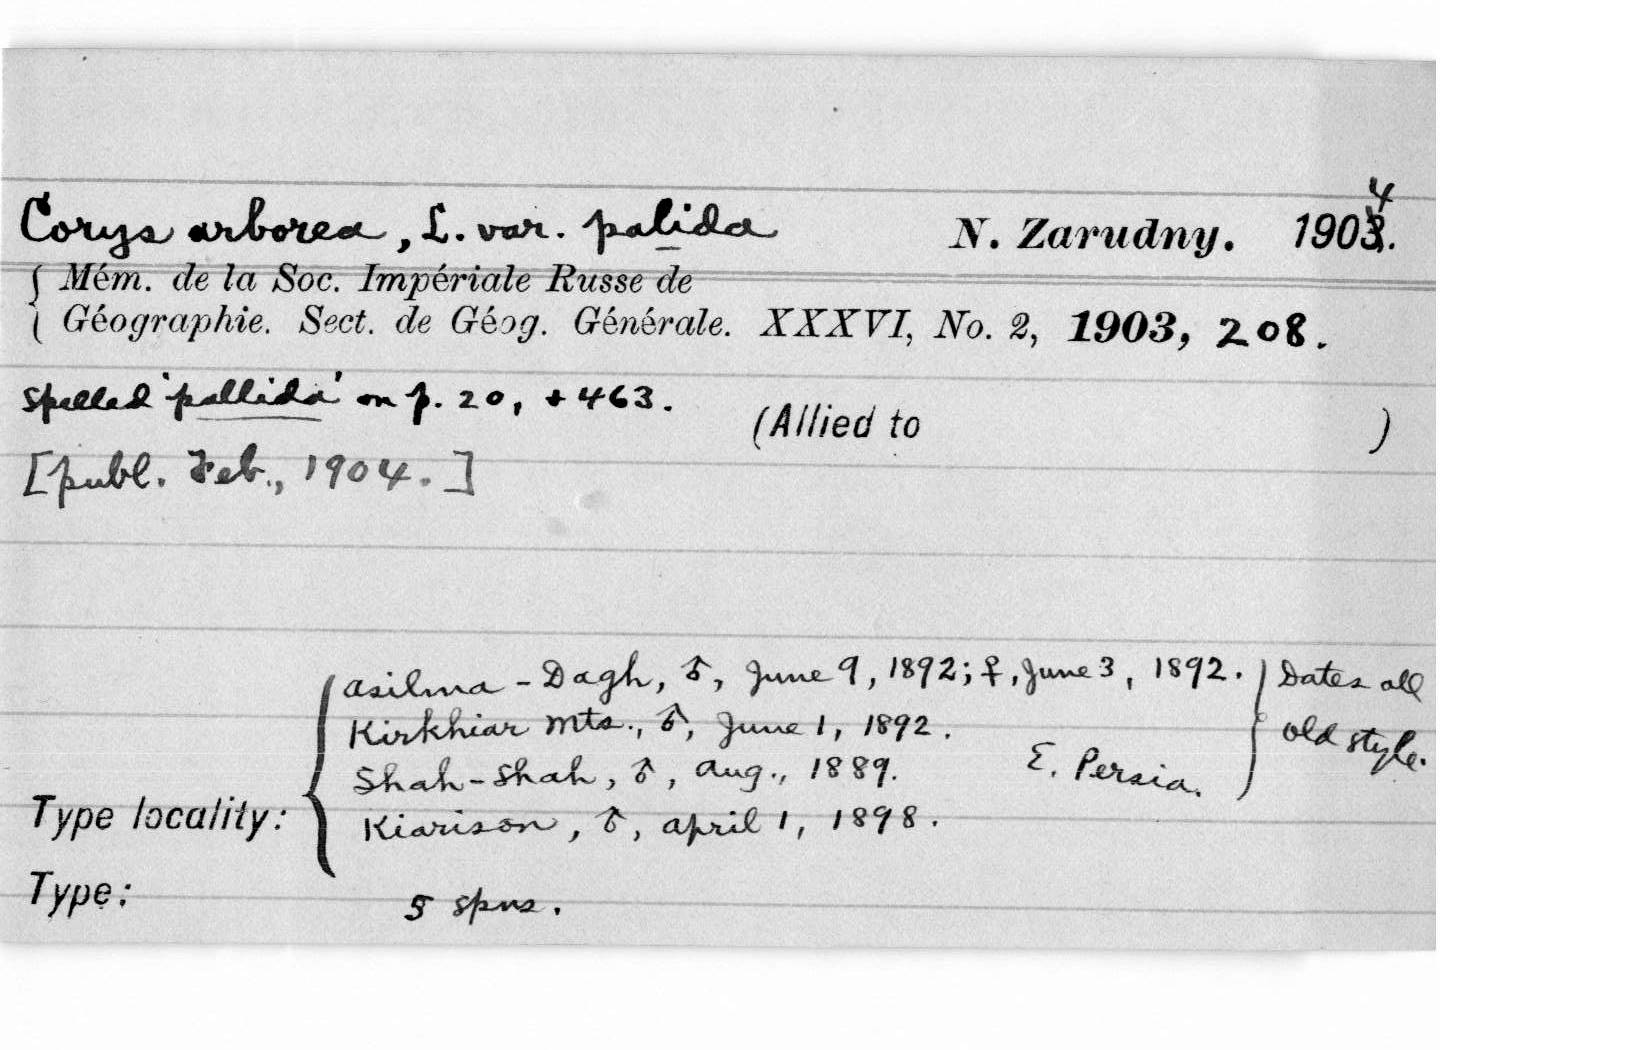 Corys arborea, L. var. palida N. Zarudny. 1903. 4
Mém. de la Soc. Impériale Russe de
Géographie. Sect. de Géog. Générale. XXXVI, No. 2, 1903, 208.
Spelled 'pallida' on p. 20, + 463.
(Allied to )
[publ. Feb., 1904.]
Asilma-Dagh, ♂, June 9, 1892; ♀, June 3, 1892. Dates all
Kirkhiar Mts., ♂, June 1, 1892. old style.
Shah-Shah, ♂, Aug., 1889. E. Persia.
Type locality: Kiarison, ♂, April 1, 1898.
Type: 5 spns.